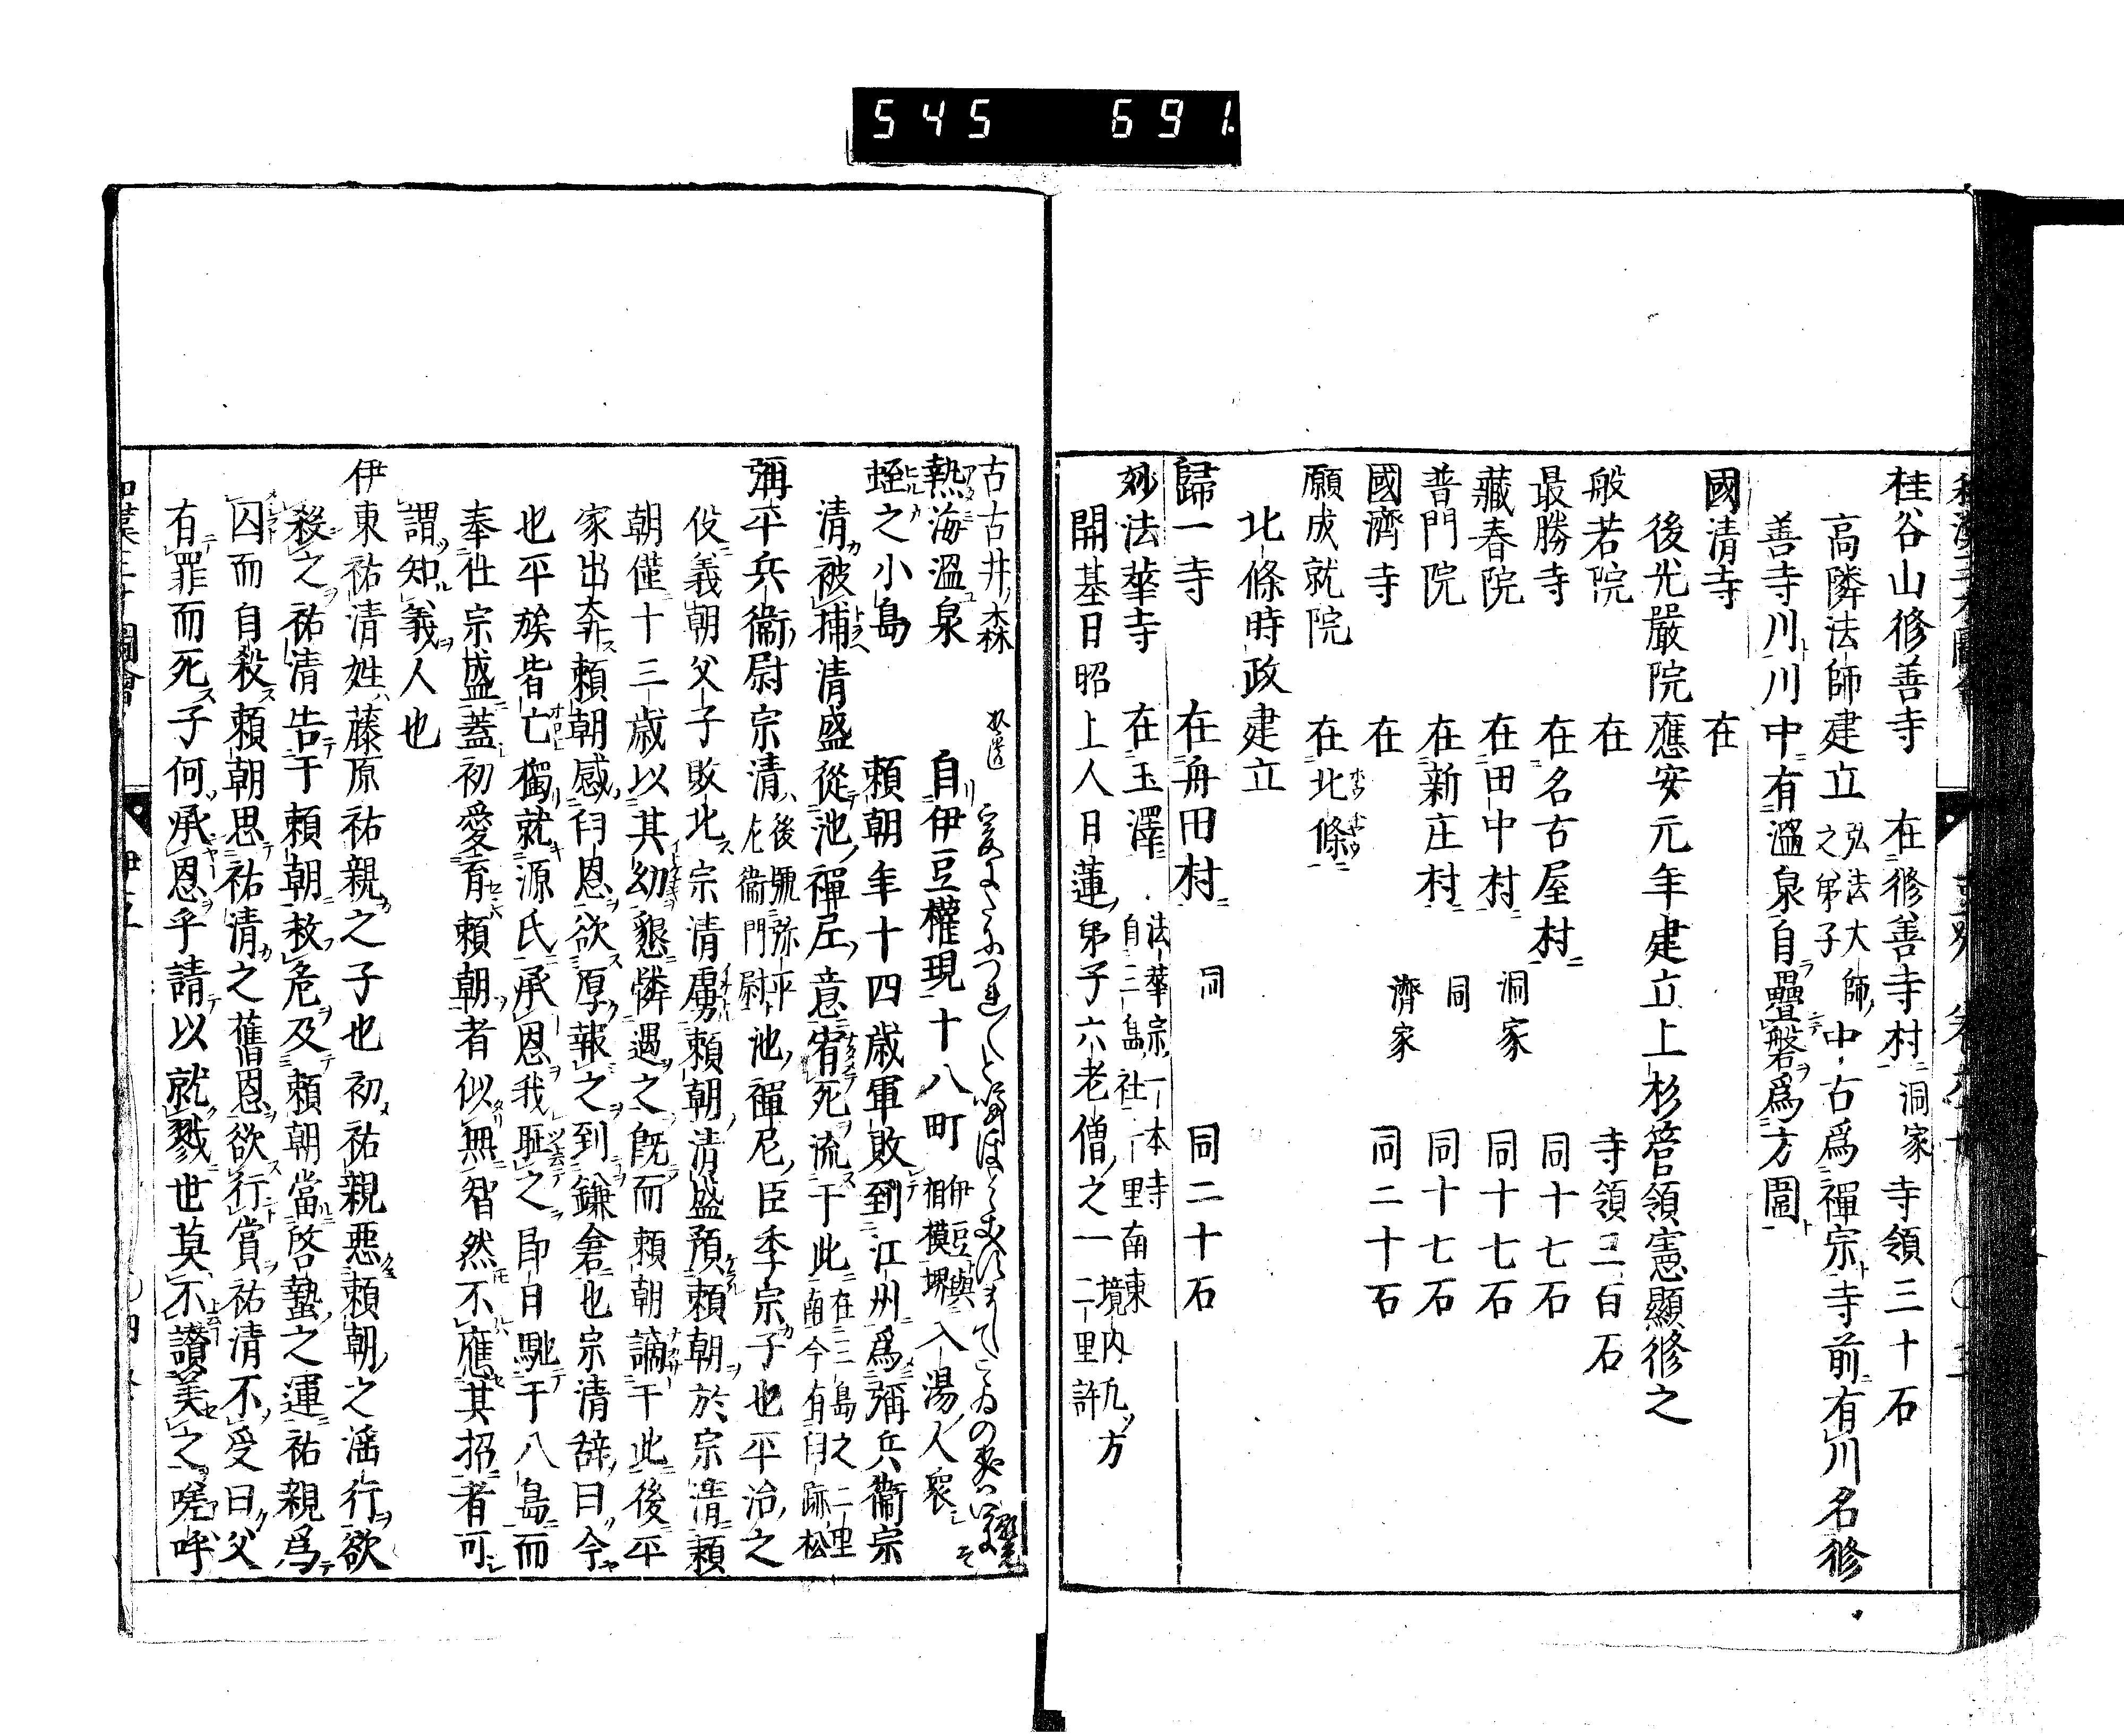 545 691
桂谷山修善寺 在修善寺村 洞家 寺領三十石
高隣法師建立 弘法大師之弟子 中古爲禪宗寺前有川名修
善寺川川中有溫泉自疊磐爲方圓
國清寺 在
後光嚴院應安元年建立上杉管領憲顯修之
般若院 在 寺領二百石
最勝寺 在名古屋村 同十七石
藏春院 在田中村 洞家 同十七石
普門院 在新庄村 同 同十七石
國濟寺 在 濟家 同二十石
願成就院 在北條
北條時政建立
歸一寺 在舟田村 同 同二十石
妙法華寺 在玉澤 法華宗一本寺 自三島社一里南東 境内凡方二里許
開基日昭上人日蓮弟子六老僧之一
古古井森
熱海溫泉 自伊豆權現十八町 伊豆與相模堺 入湯人衆
蛭之小島 頼朝年十四歳軍敗到江州爲彌兵衞宗
清被捕清盛從池禪尼意宥死流于此 在三島之二里南今有旧跡松
彌平兵衞尉宗清 後號弥平左衞門尉 池禪尼臣季宗子也平治之
役義朝父子敗北宗清虜頼朝清盛預頼朝於宗清頼
朝僅十三歳以其幼懇憐遇之既而頼朝謫于此後平
家出奔頼朝感旧恩欲厚報之到鎌倉也宗清辞曰今
也平族皆亡獨就源氏承恩我耻之即日馳于八島而
奉仕宗盛蓋初愛育頼朝者似無智然不應其招者可
謂知義人也
伊東祐清姓藤原祐親之子也初祐親惡頼朝之滛行欲
殺之祐清告于頼朝救危及頼朝當啓蟄之運祐親爲
囚而自殺頼朝思祐清之舊恩欲行賞祐清不受曰父
有罪而死子何承恩乎請以就戮世莫不讃美之嗟呼